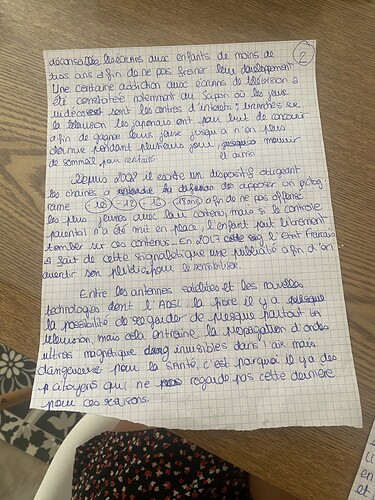 2
déconseille les écrans aux enfants de moins de
trois ans afin de ne pas freiner leur développement
Une certaine addiction aux écrans de télévision a
été constatée notamment au Japon où les jeux
vidéos sont les centres d'intérêts; branchés sur
la télévision les japonais ont pour but de concourir
afin de gagner leurs jeux jusqu'à n'en plus
dormir pendant plusieurs jours mourir
de sommeil pour certains et ainsi
Depuis 2002 il existe un dispositif obligeant
les chaînes à apposer un picto
ramme -10 -12 -16 -18 ans afin de ne pas offenser
les plus jeunes avec leur contenu, mais si le contrôle
parental n'a été mit en place, l'enfant peut librement
tomber sur ces contenus. En 2017 l'Etat Français
a fait de cette signalétique une publicité afin d'en
avertir son public pour le sensibiliser.
Entre les antennes satellites et les nouvelles
technologies dont l'ADSL, la fibre il y a
la possibilité de regarder de presque partout la
télévision, mais cela entraîne la propagation d'ondes
ultras magnétique invisibles dans l'air mais
dangereuses pour la santé, c'est pourquoi il y a des
citoyens qui ne regarde pas cette dernière
pour ces raisons.